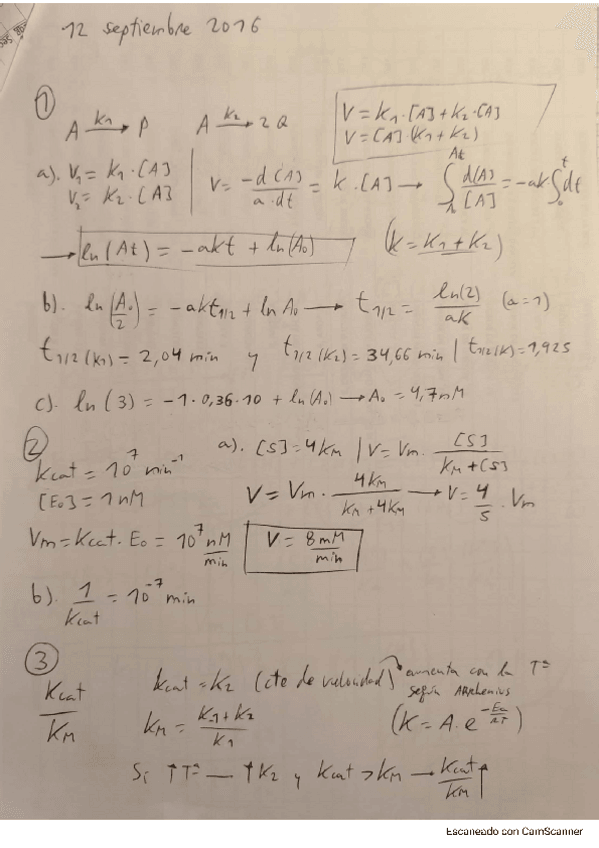 12 septiembre 2016
①
A —k₁→ P    A —k₂→ 2Q
V = k₁·[A] + k₂·[A]
V = [A]·(k₁ + k₂)
a). V₁ = k₁·[A]
V₂ = k₂·[A]
V = -d[A] / a·dt = k·[A] → ∫ d[A]/[A] = -ak ∫₀ᵗ dt
→ ln(At) = -akt + ln(A₀)    (k = k₁ + k₂)
b). ln(A₀/2) = -akt₁/₂ + ln A₀ → t₁/₂ = ln(2)/ak (a=1)
t₁/₂(k₁) = 2,04 min y t₁/₂(k₂) = 34,66 min | t₁/₂(k) = 1,925
c). ln(3) = -1·0,36·10 + ln(A₀) → A₀ = 4,7nM
②
a). [S] = 4KM | V = Vm · [S] / KM+[S]
kcat = 10⁷ min⁻¹
[E₀] = 1 nM
V = Vm · 4KM / KM+4KM → V = 4/5 · Vm
Vm = kcat · E₀ = 10⁷ nM/min
V = 8 mM/min
b). 1/kcat = 10⁻⁷ min
③
kcat/KM
kcat = k₂ (cte de velocidad) aumenta con la Tª
según Arrhenius
KM = k₋₁ + k₂ / k₁    (k = A·e^(-Ea/RT))
Si ↑Tª — ↑k₂ y kcat > KM → kcat/KM ↑
Escaneado con CamScanner